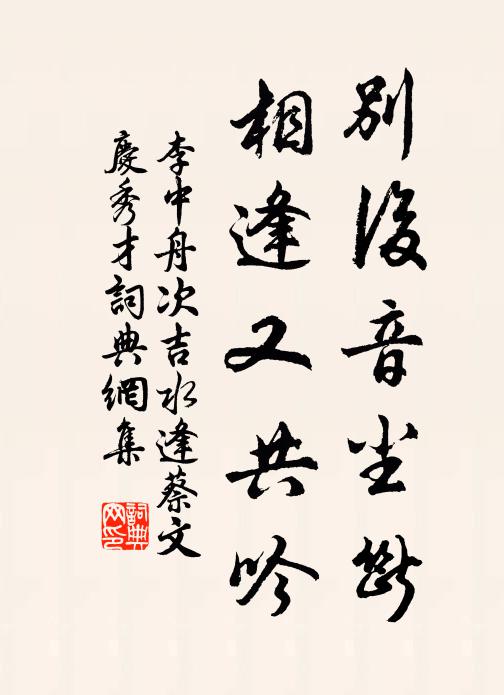 別後音塵斷
相逢又共吟
李中舟次吉水逢蔡文
慶秀才詞典網集
詞典
网印